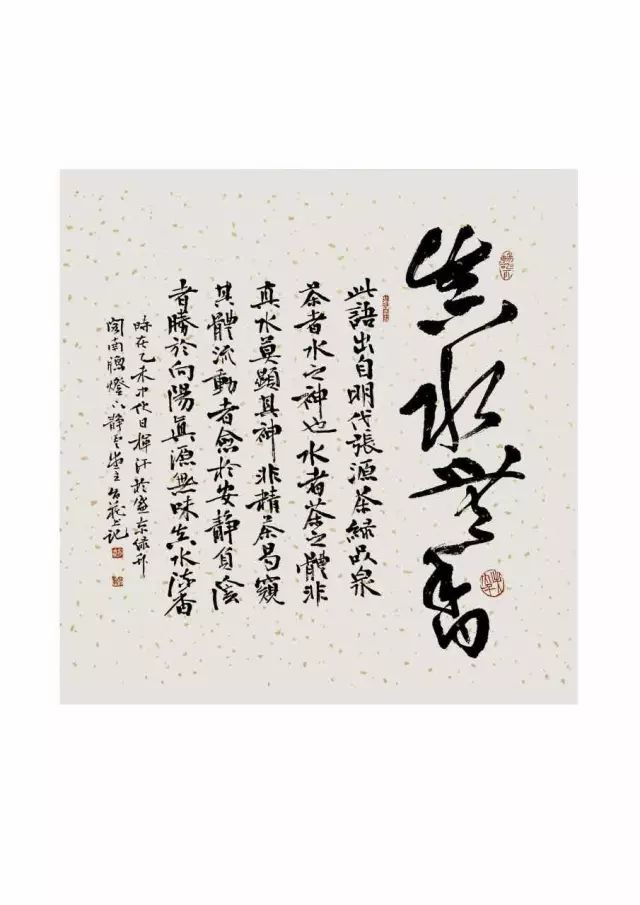 真水無香
此語出自明代張源茶録品泉
茶者水之神也水者茶之體非
真水莫顯其神非精茶曷窺
其體流動者愈於安靜負陰
者勝於向陽真源無味真水無香
時在乙未中秋日揮汗於
閩南